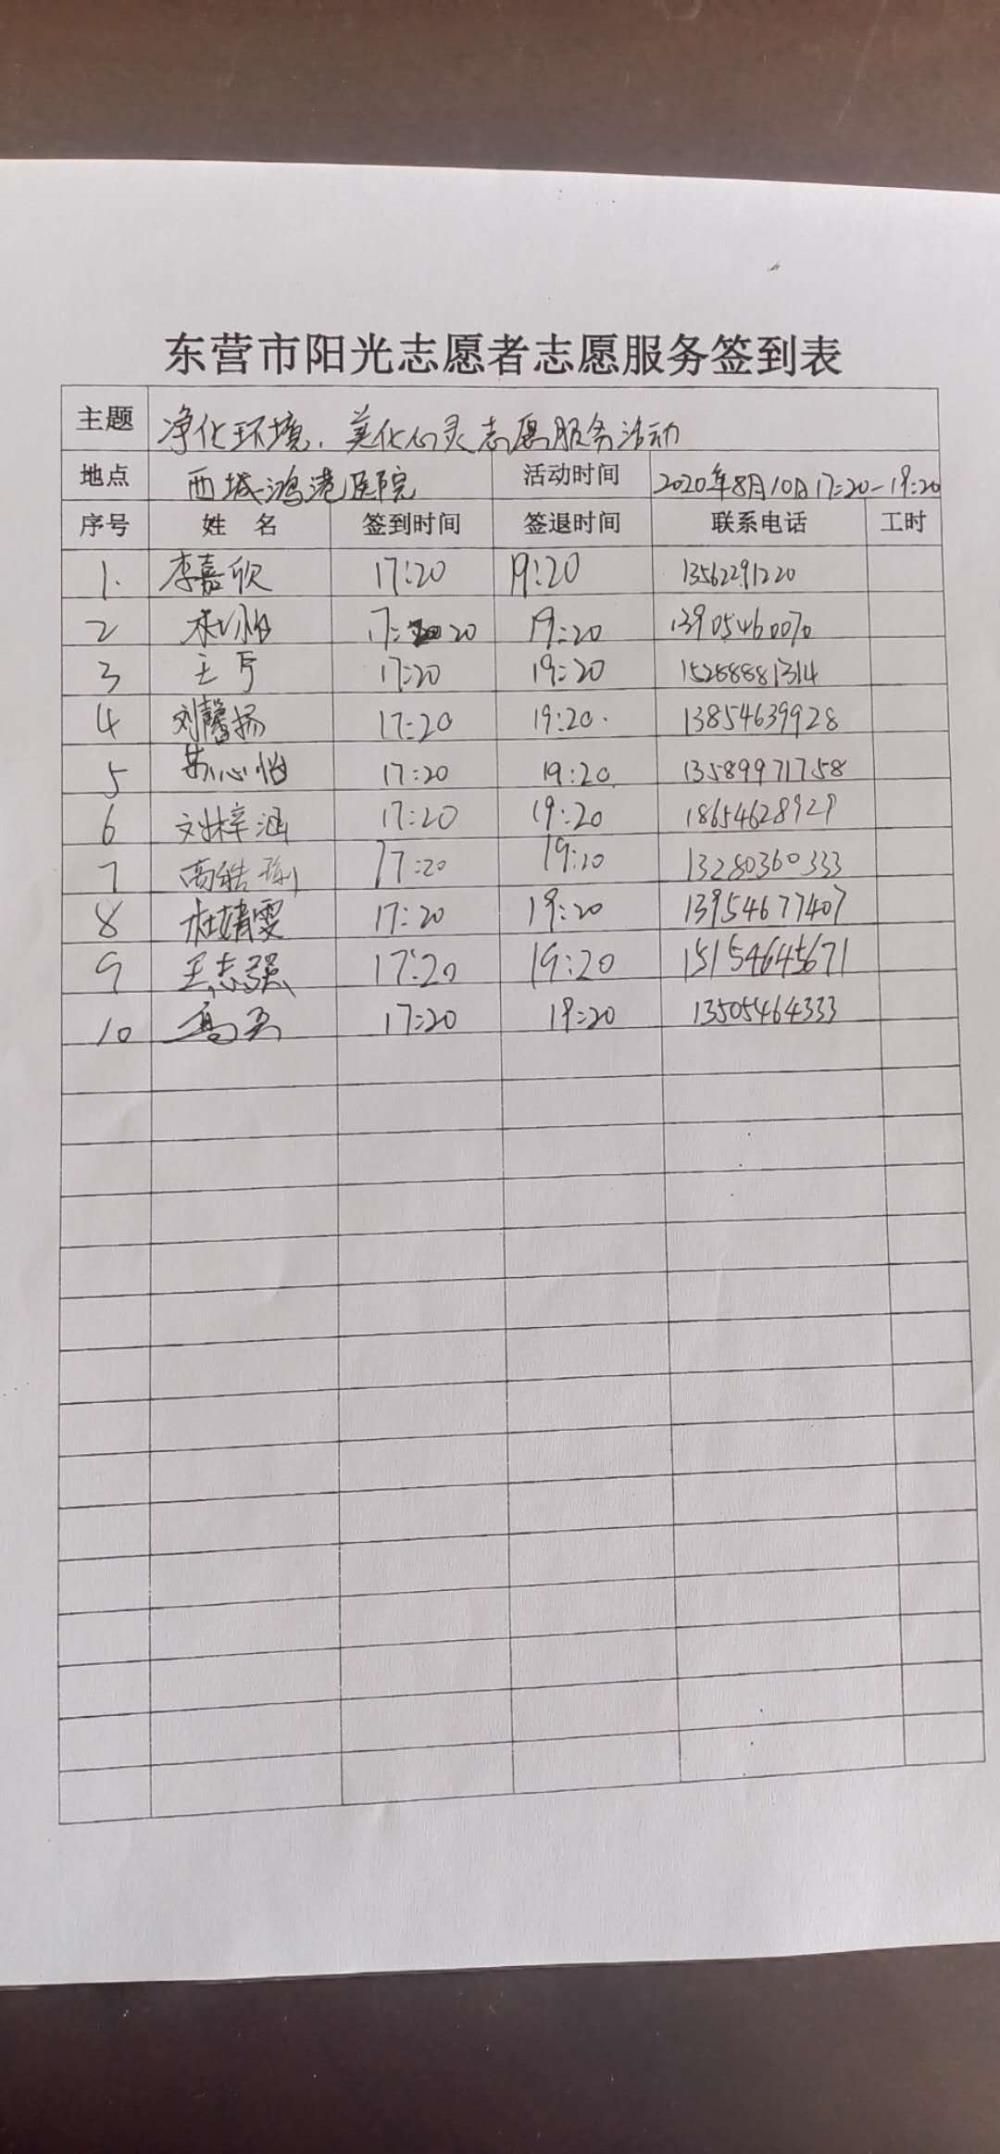 东营市阳光志愿者志愿服务签到表
主题 净化环境、美化心灵志愿服务活动
地点 西城鸿港医院 活动时间 2020年8月10日17:20-19:20
序号 姓名 签到时间 签退时间 联系电话 工时
1. 李嘉欣 17:20 19:20 13562291220
2 17:20 19:20 13905460070
3 王 17:20 19:20 15288881314
4 刘馨扬 17:20 19:20. 13854639928
5 苏心怡 17:20 19:20. 13589971758
6 刘梓涵 17:20 19:20 18654628929
7 高皓 17:20 19:20 13280360333
8 杜婧雯 17:20 19:20 13954677407
9 王志强 17:20 19:20 15154645671
10 高 17:20 19:20 13505464333